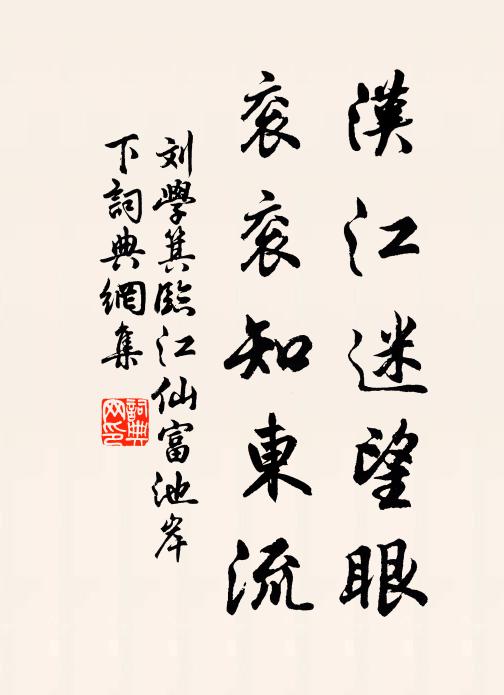 漢江迷望眼
衮衮知東流
刘學箕臨江仙富池岸
下詞典網集
詞典網印